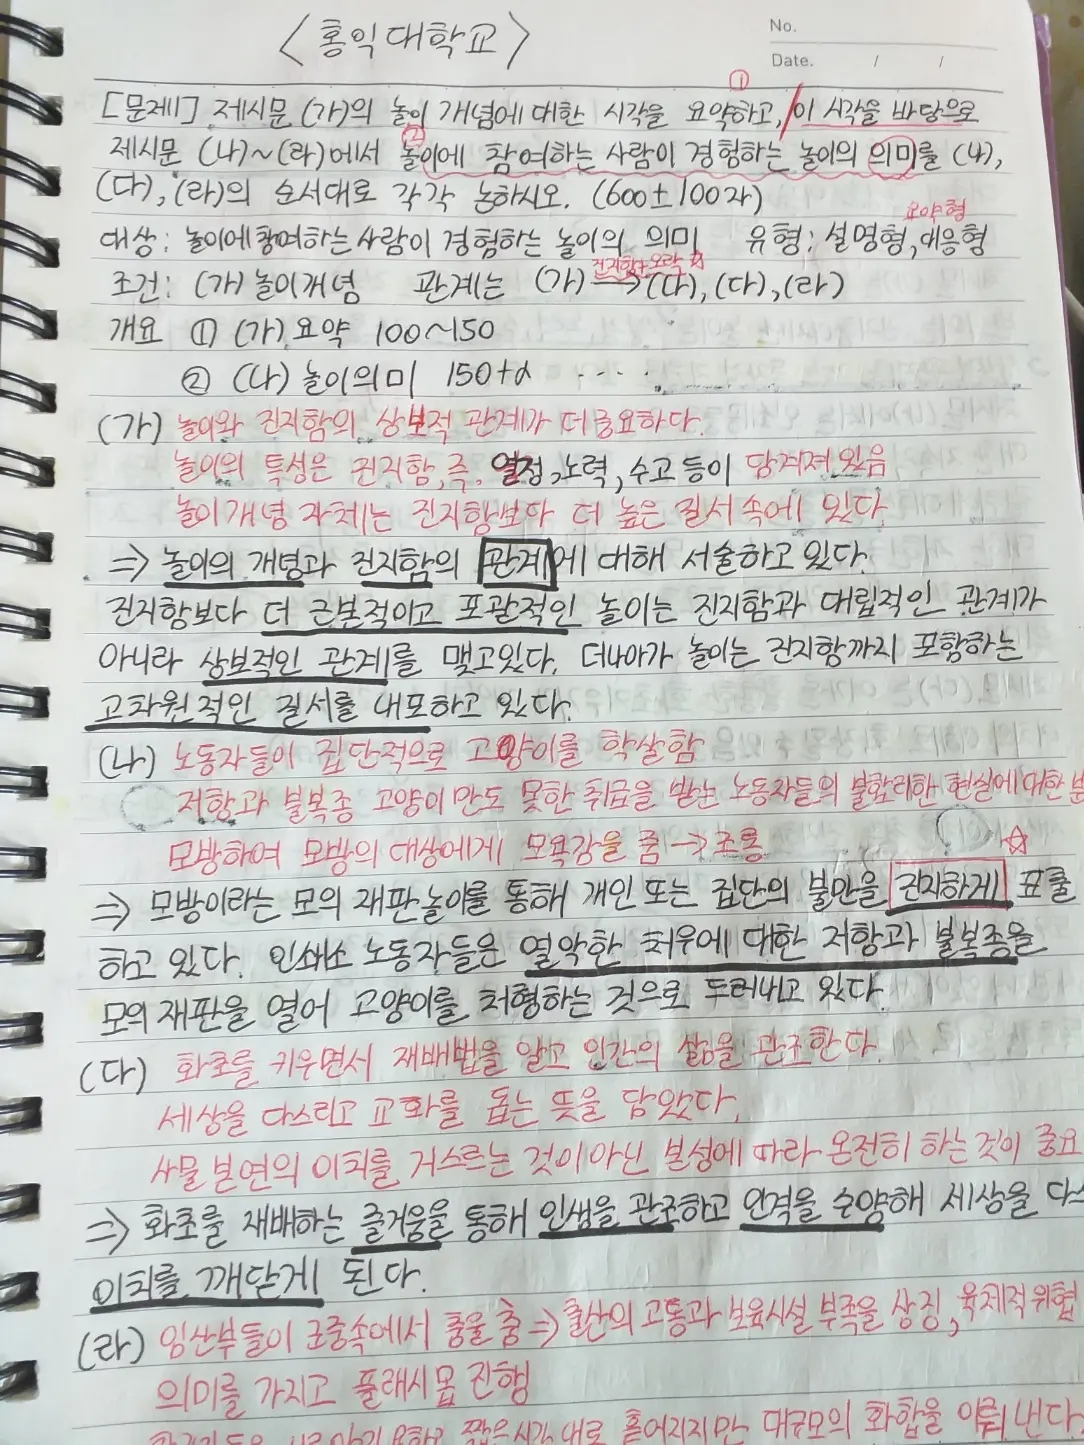 <홍익대학교>
No.
Date. / /
①
[문제1] 제시문 (가)의 놀이 개념에 대한 시각을 요약하고, / 이 시각을 바탕으로
②
제시문 (나)~(라)에서 놀이에 참여하는 사람이 경험하는 놀이의 의미를 (나),
(다), (라)의 순서대로 각각 논하시오. (600±100자)
요약형
대상: 놀이에 참여하는 사람이 경험하는 놀이의 의미 유형: 설명형, 대응형
진지함+오락 ☆
조건: (가) 놀이개념 관계는 (가) → (다), (다), (라)
개요 ① (가) 요약 100~150
② (나) 놀이의미 150+α ....
(가) 놀이와 진지함의 상보적 관계가 더 중요하다.
놀이의 특성은 진지함, 즉, 열정, 노력, 수고 등이 담겨져 있음
놀이개념 자체는 진지함보다 더 높은 질서 속에 있다
⇒ 놀이의 개념과 진지함의 관계에 대해 서술하고 있다.
진지함보다 더 근본적이고 포괄적인 놀이는 진지함과 대립적인 관계가
아니라 상보적인 관계를 맺고있다. 더나아가 놀이는 진지함까지 포함하는
고차원적인 질서를 내포하고 있다.
(나) 노동자들이 집단적으로 고양이를 학살함
저항과 불복종 고양이만도 못한 취급을 받는 노동자들의 불합리한 현실에 대한 분
모방하여 모방의 대상에게 모욕감을 줌 → 조롱
☆
⇒ 모방이라는 모의 재판놀이를 통해 개인 또는 집단의 불만을 진지하게 표출
하고 있다. 인쇄소 노동자들은 열악한 처우에 대한 저항과 불복종을
모의 재판을 열어 고양이를 처형하는 것으로 드러내고 있다.
(다) 화초를 키우면서 재배법을 알고 인간의 삶을 관조한다.
세상을 다스리고 교화를 돕는 뜻을 담았다.
사물 본연의 이치를 거스르는 것이 아닌 본성에 따라 온전히 하는 것이 중요
⇒ 화초를 재배하는 즐거움을 통해 인생을 관조하고 인격을 수양해 세상을 다스
이치를 깨닫게 된다.
(라) 임산부들이 군중속에서 춤을 춤 ⇒ 출산의 고통과 보육시설 부족을 상징, 육체적 위협
의미를 가지고 플래시몹 진행
짧은시간 대로 흩어지지만 대규모의 화합을 이뤄 낸다.